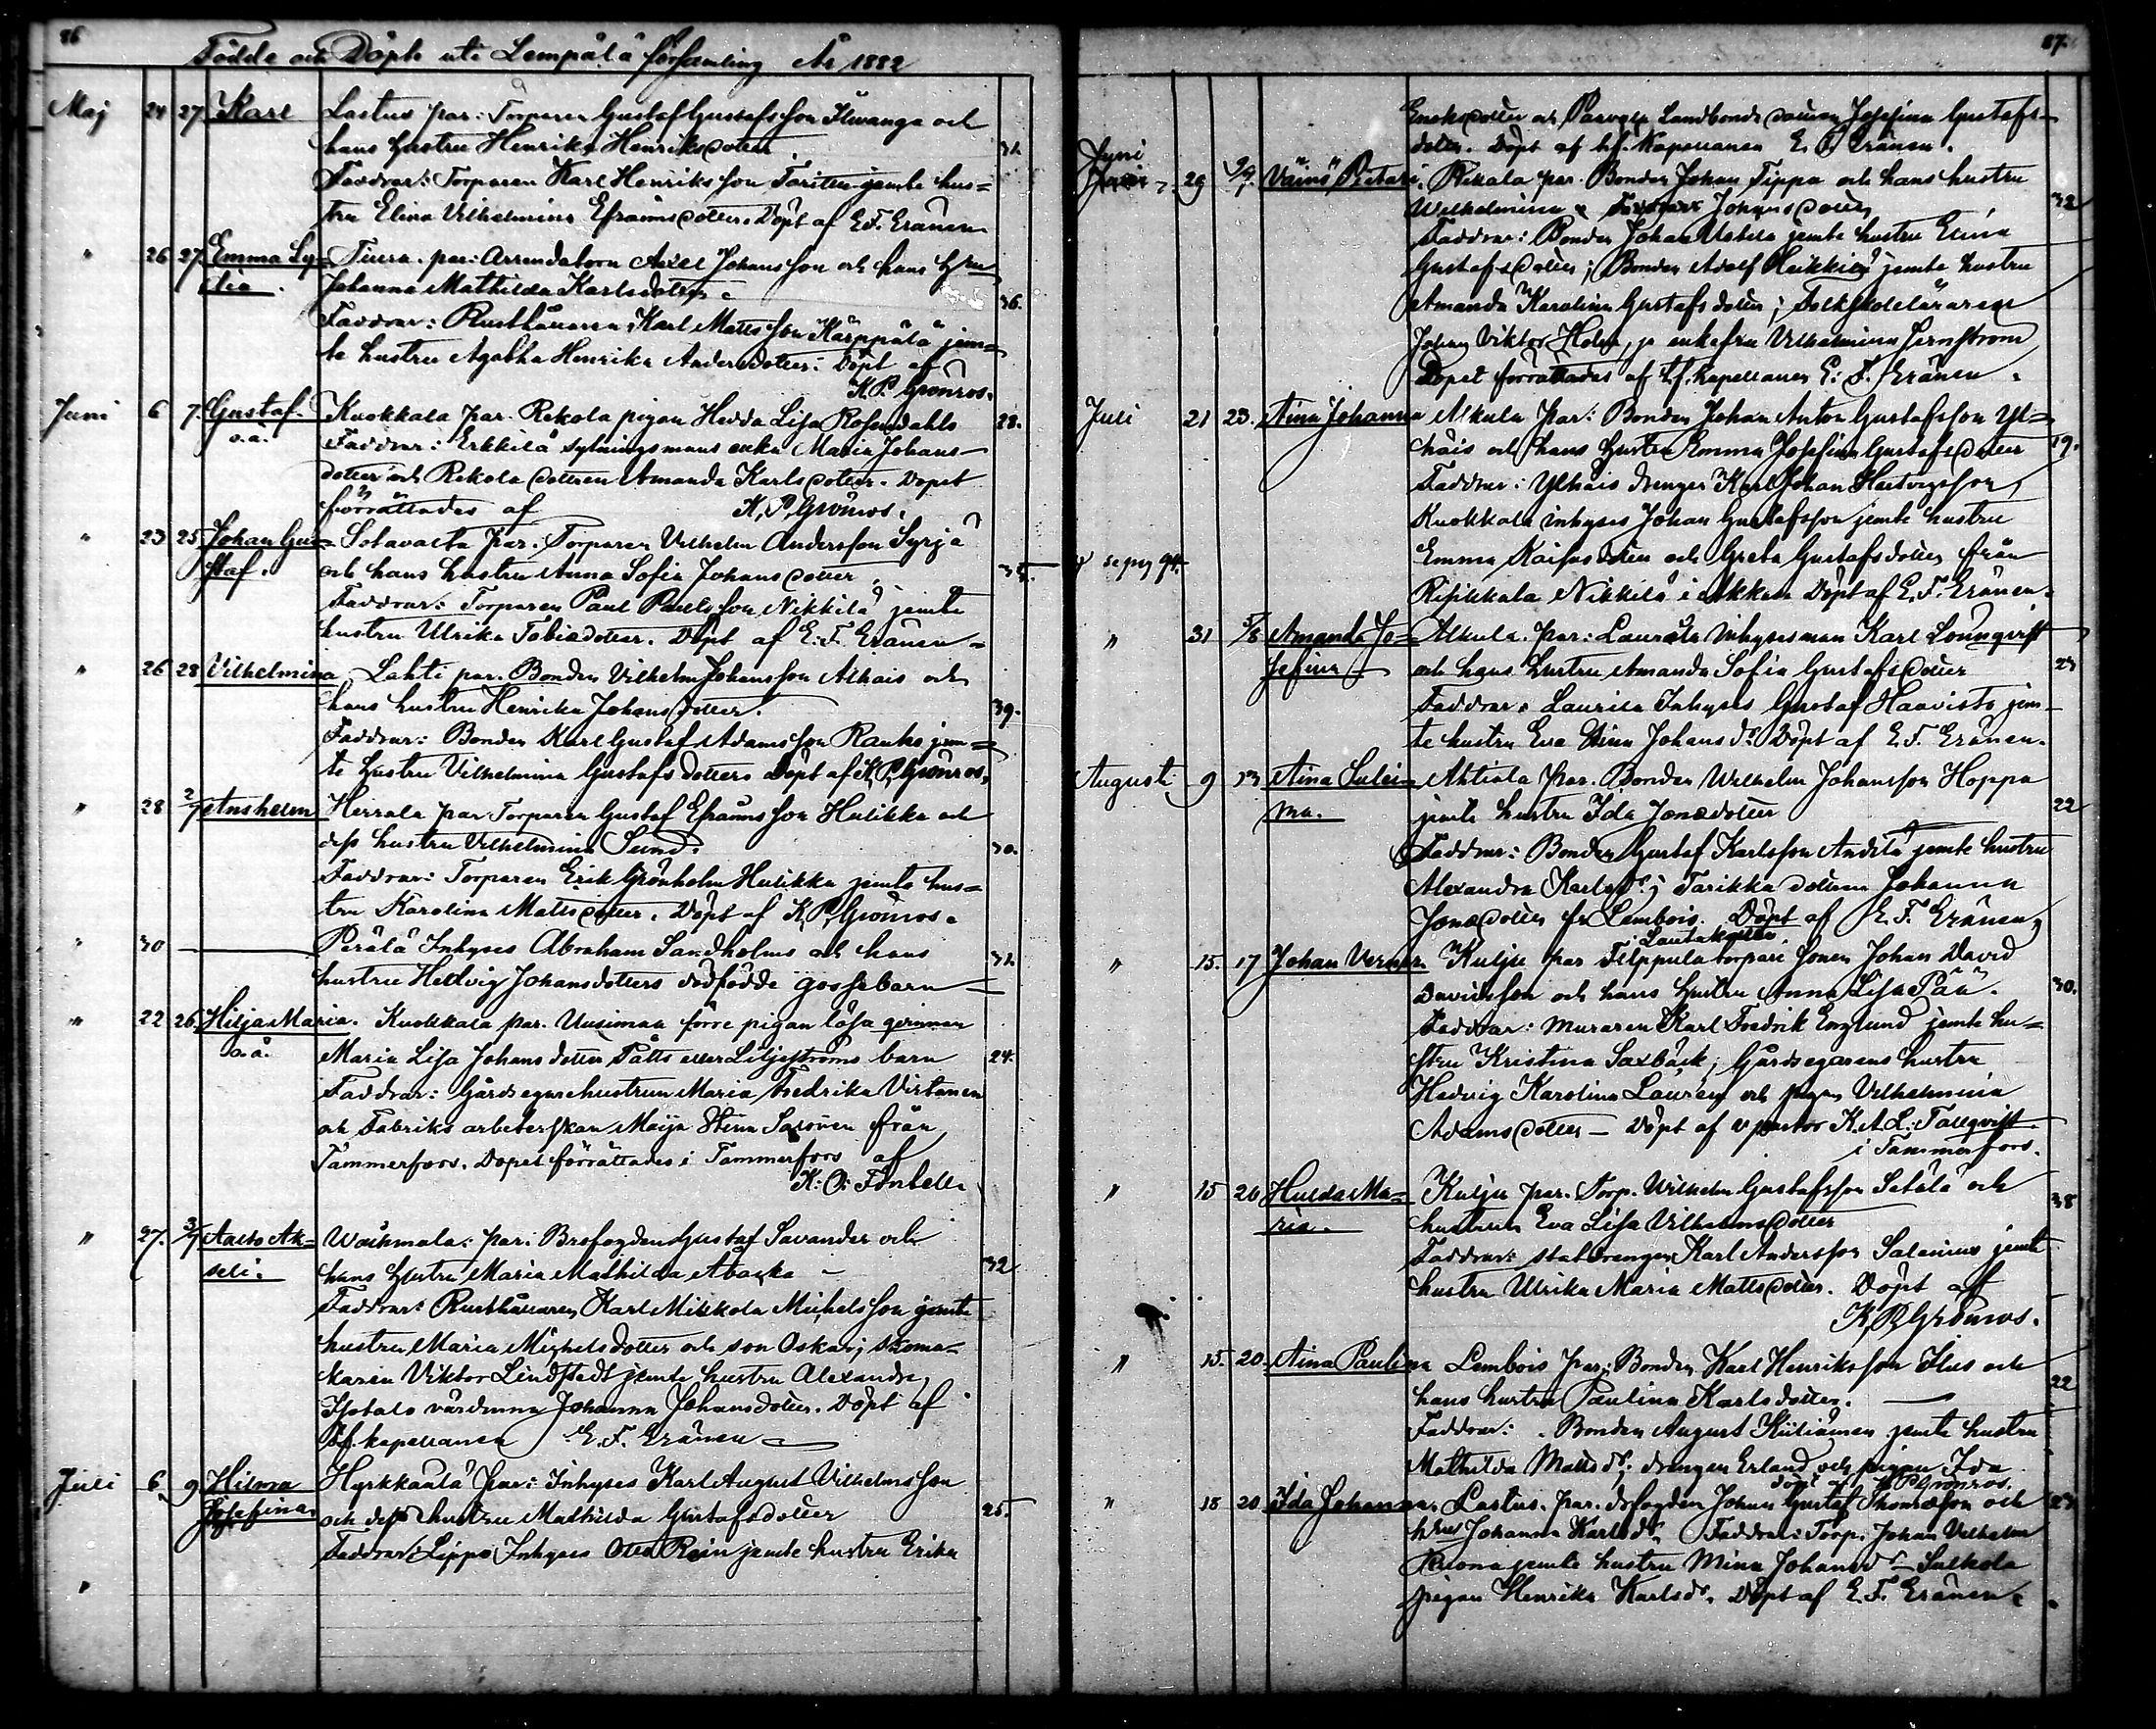 86
Födde och Döpte uti Lempälä församling År 1882
Maj 24 27 Karl Lastus par: Torparen Gustaf Gustafsson Ilwanga och
hans hustru Henrika Henriksdotter 31.
Faddrar: Torparen Karl Henriksson Torsten jemte hus=
tru Elina Vilhelmina Efraimsdotter. Döpt af E.F. Eränen
" 26 27 Emma Ly= Tiura. par: Arrendatorn Axel Johansson och hans h:ru
dia. Johanna Mathilda Karlsdotter. 36.
Faddrar: Rusthållaren Karl Mattsson Kärppälä jem=
te hustru Agatha Henrika Andersdotter. Döpt af
K.P. Grönros.
Juni 6 7. Gustaf. Kuokkala par. Rekola pigan Hedda Lisa Rosendahls 28.
o.ä. Faddrar: Erkkilä sytningsmans enka Maria Johans=
dotter och Rekola dottren Amanda Karlsdotter. Dopet
förrättades af K.P. Grönros.
" 23 25 Johan Gus= Sotavalta par. Torparen Vilhelm Andersson Syrjä
staf. och hans hustru Anna Sofia Johansdotter.
Faddrar: Torparen Paul Paulsson Nikkilä jemte
hustru Ulrika Tobiedotter. Döpt af E.F. Eränen
" 26 28 Vilhelmina Lahti par. Bonden Vilhelm Johansson Alhais och
hans hustru Henrika Johansdotter. 39.
Faddrar: Bonden Karl Gustaf Adamsson Ranko jem=
te hustru Vilhelmina Gustafsdotter Döpt af K.P. Grönros,
" 28 2/7 Anshelm Herrala par Torparen Gustaf Efraimsson Hulikka och
dess hustru Vilhelmina Sund. 30.
Faddrar: Torparen Erik Grönholm Hulikka jemte hus=
tru Karolina Mattsdotter. Döpt af K.P. Grönros.
" 30 Perälä Inhyses Abraham Sandholms och hans 31.
hustru Hedvig Johansdotters dödfödde gossebarn
" 22 26. Hilja Maria. Kuokkala par. Uusimaa förre pigan lösa qvinnan
o.ä. Maria Lisa Johansdotter Pätts eller Liljeströms barn 24.
Faddrar: Gårdsegarehustrun Maria Fredrika Virtanen
och Fabriks arbeterskan Maija Stina Salonen från
Tammerfors. Dopet förrättades i Tammerfors af
K: O: Fontell
" 27. 3/7 Aarto Ak= Waihmala: par: Brofogden Gustaf Savander och
seli. hans hustru Maria Mathilda Abacka 32
Faddrar: Rusthållaren Karl Mikkola Michelsson jemte
hustru Maria Michelsdotter och son Oskar; skoma=
karen Viktor Lindstedt jemte hustru Alexandra,
Isotalo värdinna Johanna Johansdotter. Döpt af
tf. kapellanen E.F. Eränen
Juli 6 9 Hilma Hyrkkäälä par: Inhyses Karl August Vilhelmsson
Josefina och dess hustru Mathilda Gustafsdotter 25.
Faddrar: Lippo Inhyses Otto Rein jemte hustru Erika
87.
Enoksdotter och Landbonde dottren Josefina Gustafs=
dotter. Döpt af tf. Kapellanen E. F. Eränen.
Juni 29 9/7 Väinö Petteri, Rekala par. Bonden Johan Tippa och hans hustru
Wilhelmina Johansdotter 32
Faddrar: Bonden Johan jemte hustru Elina
Gustafsdotter; Bonden Adolf Heikkilä jemte hustru
Amanda Karolina Gustafsdotter; Folkskoleläraren
Johan Viktor Helin, jo enkefru Vilhelmina
Dopet förrättades af tf. kapellanen E: F. Eränen.
Juli 21 23. Aina Johanna Alkula par: Bonden Johan Anton Gustafsson Yl=
häis och hans hustru Emma Josefina Gustafsdotter 19.
Faddrar: Ylhäis drengen Karl Johan Hartvigsson,
Kuokkala inhyses Johan Gustafsson jemte hustru
Emma Kaifasdotter och Greta Gustafsdotter från
Nikkilä i Akkas Döpt af E.F. Eränen.
" 31 5/8 Amanda Jo= Alkula. par: Laurila Inhysesman Karl Lounqvist
sefina och hans hustru Amanda Sofia Gustafsdotter
Faddrar: Laurila Inhyses Gustaf Haavisto jem=
te hustru Eva Stina Johansd:r Döpt af E.F. Eränen.
Augusti 9 13 Aina Sulei= Ahtiala par. Bonden Wilhelm Johansson Hoppa
ma. jemte hustru Ida Jonsdotter 22
Faddrar: Bonden Gustaf Karlsson Andilä jemte hustru
Alexandra Karlsd:r; Tarikka dottren Johanna
Jonsdotter fr Lembois. Döpt af E.F. Eränen
" 15. 17 Johan Verner Kulju par Filppula torpare sonen Johan David
Davidsson och hans hustru Anna Lisa Pää. 30.
Faddrar: muraren Karl Fredrik Englund jemte hu=
stru Kristina Saxbäck; Gårdsegarens hustru
Hedvig Karolina Lauren och pigan Vilhelmina
Adamsdotter — Döpt af v pastor K.A.L. Tallqvist
i Tammerfors.
" 15 26 Hulda Ma= Kulju par. Torp. Wilhelm Gustafsson Setälä och 38
ria. hustrun Eva Lisa Vilhelmsdotter
Faddrar: statdrengen Karl Andersson Salenius jemte
hustru Ulrika Maria Mattsdotter. Döpt af
K.P. Grönros.
" 15. 20. Aina Paulina Lembois par: Bonden Karl Henriksson Ilus och
hans hustru Paulina Karlsdotter. 22
Faddrar: Bonden August Kiiliäinen jemte hustru
Mathilda Mattsd:r; drengen Erland och pigan Ida
döpt af K P Grönros.
" 18 20 Ida Johanna. Lastus. par. drfogden Johan Gustaf Thomasson och
h:rus Johanna Karlsd:r Faddrar: Torp. Johan Vilhelm
jemte hustru Mina Johansd:r Sulkola
pigan Henrika Karlsd:r. Döpt af E.F. Eränen.